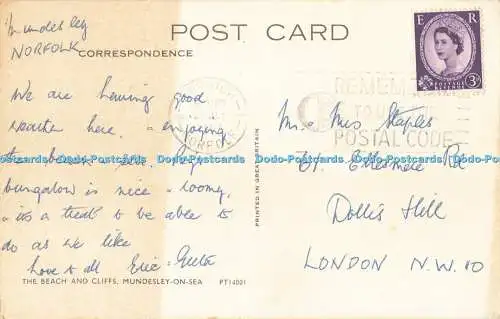 Mundesley
NORFOLK
POST CARD
CORRESPONDENCE
E R
POSTAGE REVENUE
3D
NORFOLK
REMEM
TO U
POSTAL CODE
We are having good
weather here, & enjoying
the beach
bungalow is nice & roomy,
& its a treat to be able to
do as we like
love to all Eric & Greta
THE BEACH AND CLIFFS, MUNDESLEY-ON-SEA PT14001
PRINTED IN GREAT BRITAIN
Mr & Mrs Staples
Ellesmere Rd
Dollis Hill
LONDON N.W.10
Da Postcards Da Postcards Da Postcards Da Postcards Da Postcards Da Postcards